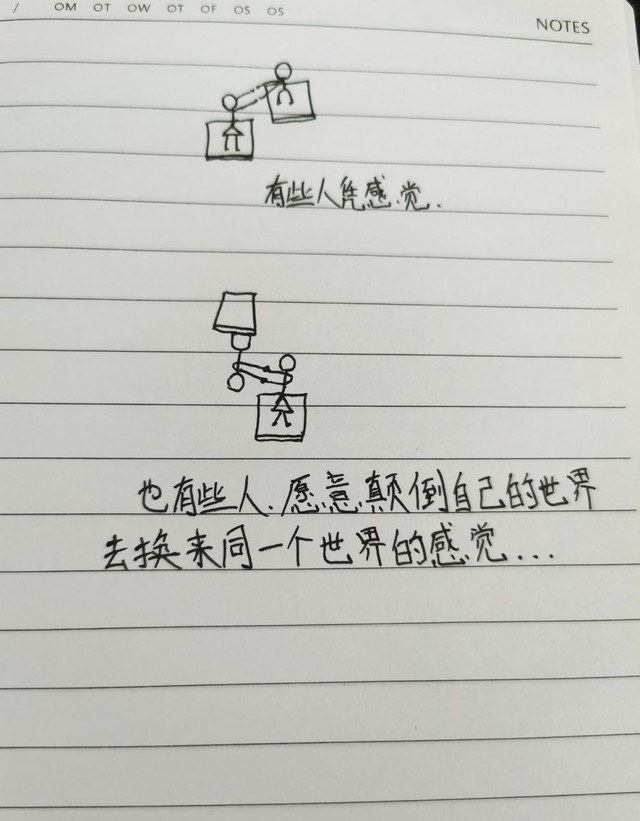 / OM OT OW OT OF OS OS
NOTES
有些人凭感觉.
也有些人.愿意颠倒自己的世界
去换来同一个世界的感觉...